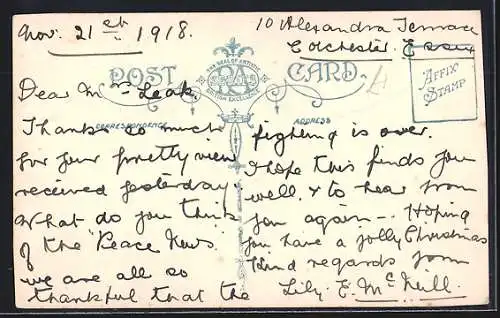 Nov. 21st 1918.
10 Alexandra Terrace
Colchester. Essex
POST CARD.
THE SEAL OF ARTISTIC
BRITISH EXCELLENCE
RA
AFFIX
STAMP
CORRESPONDENCE
ADDRESS
Dear Mrs Leak,
Thanks so much
for your pretty view
received yesterday.
What do you think
of the "Peace News."
we are all so
thankful that the
fighting is over.
I hope this finds you
well. & to hear from
you again — Hoping
you have a jolly Christmas
Kind regards from
Lily. E. McNeill.